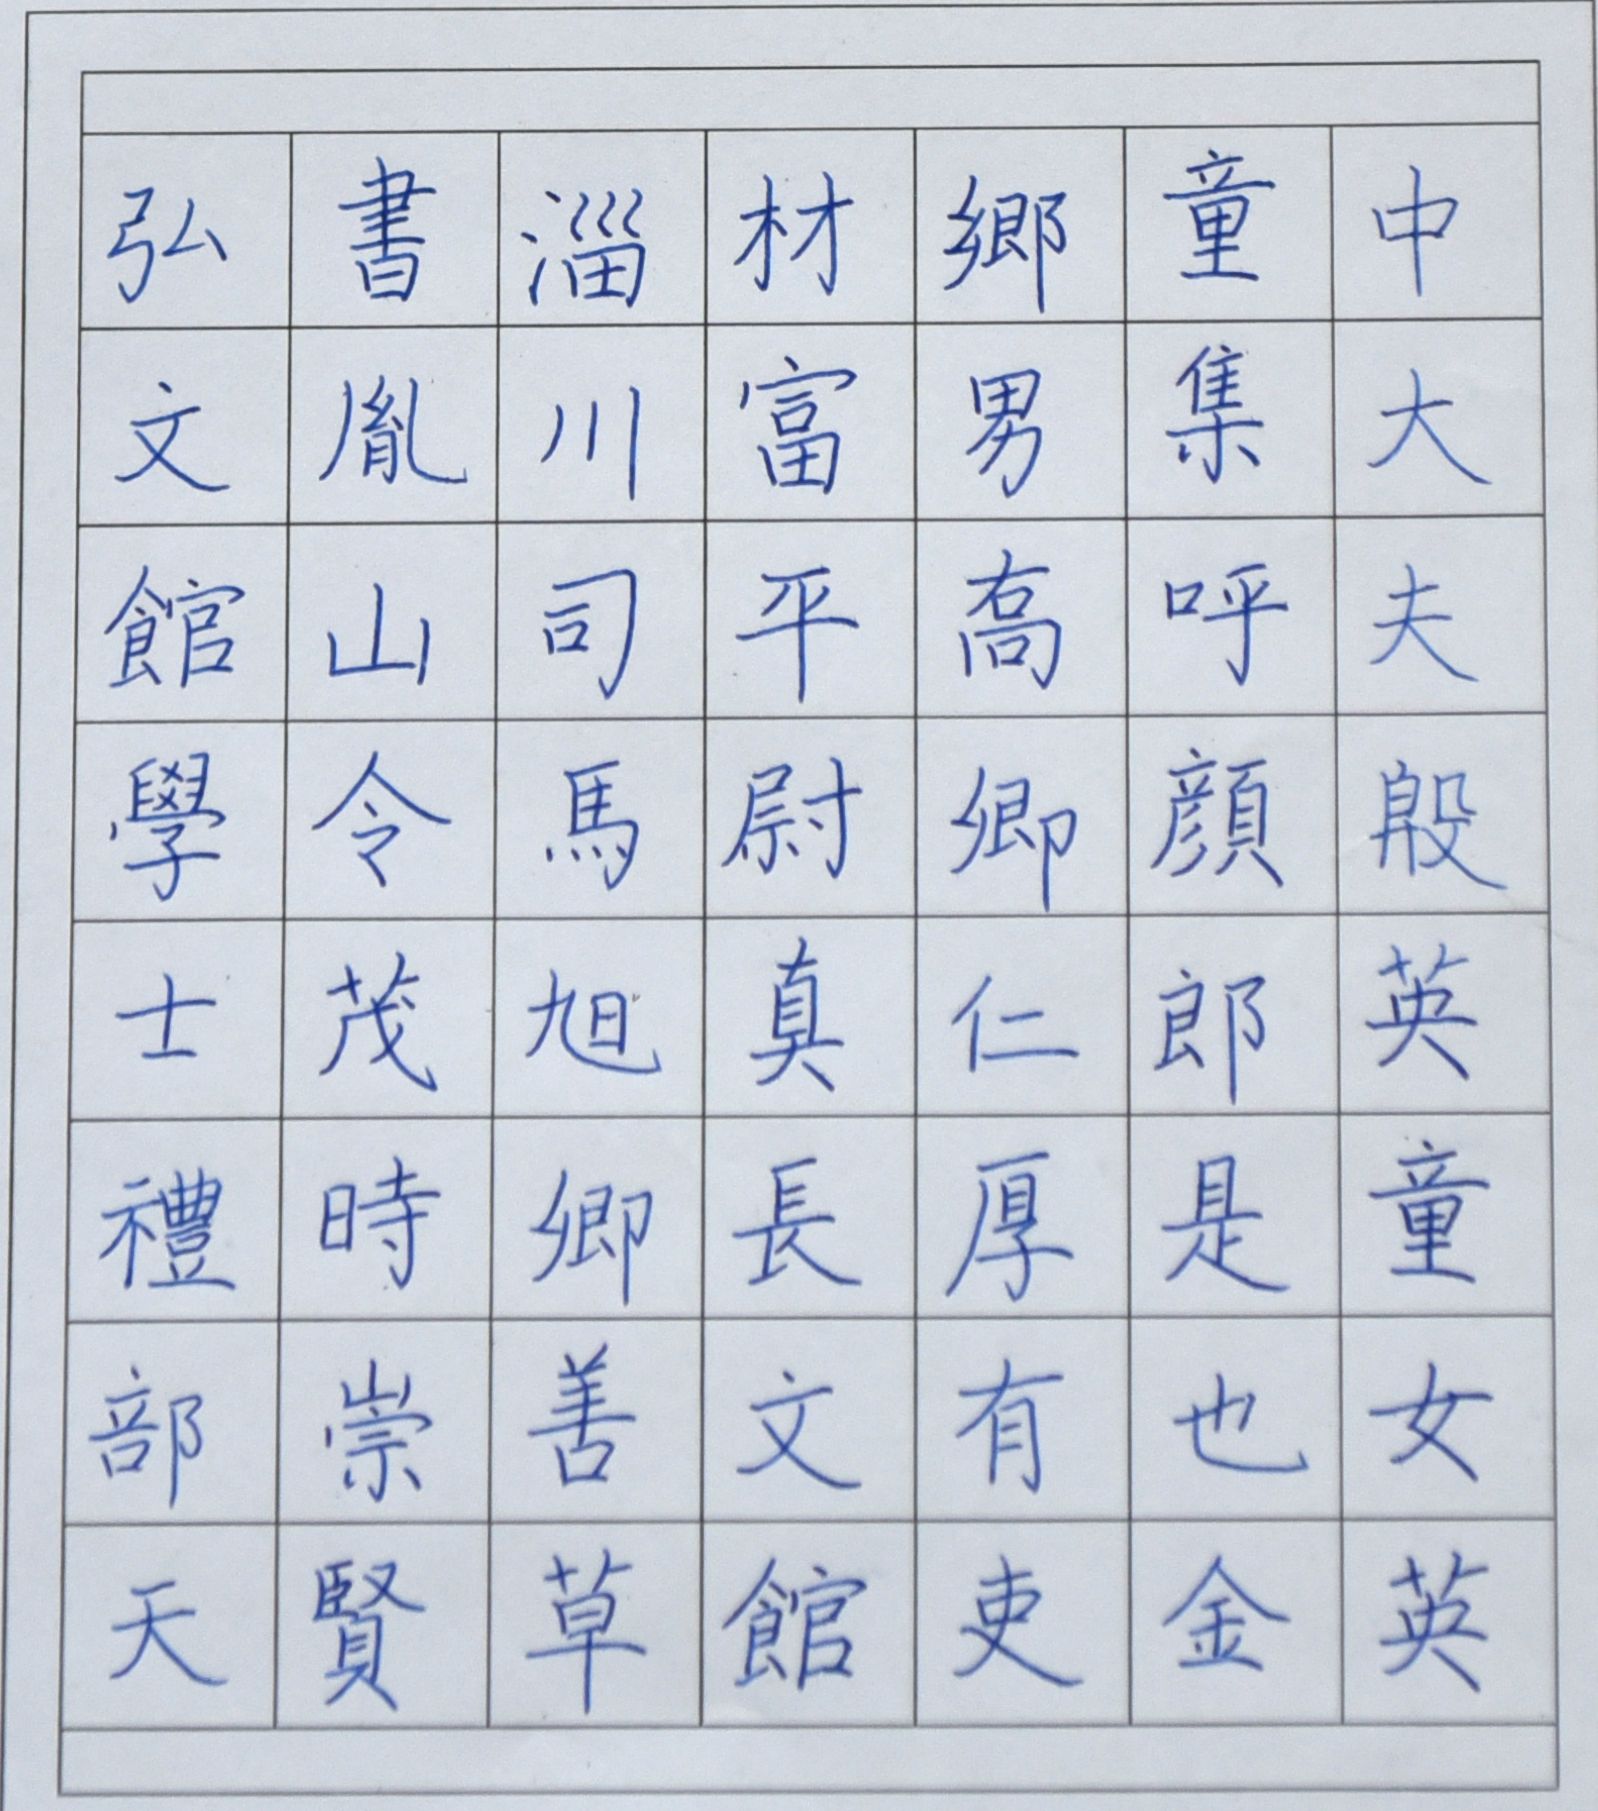 中大夫殷英童女英
童集呼顔郎是也金
鄉男高卿仁厚有吏
材富平尉真長文館
淄川司馬旭卿善草
書胤山令茂時崇賢
弘文館學士禮部天